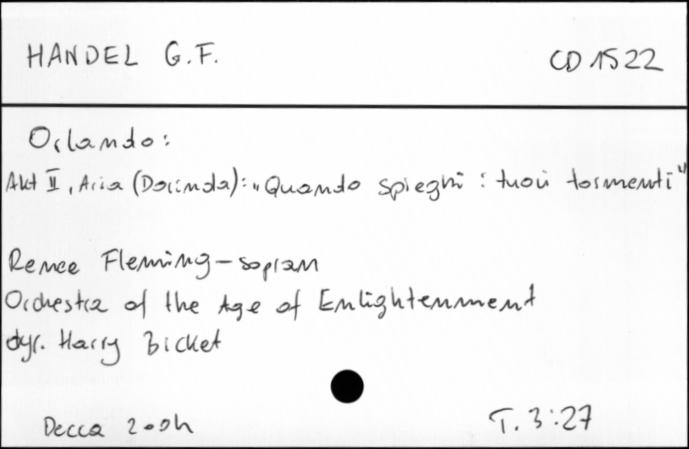 HANDEL G.F.
CD 1522
Orlando:
Akt II, Aria (Dorinda): „Quando spieghi i tuoi tormenti"
Renee Fleming - sopran
Orchestra of the Age of Enlightenment
dyr. Harry Bicket
Decca 2004
T. 3:27